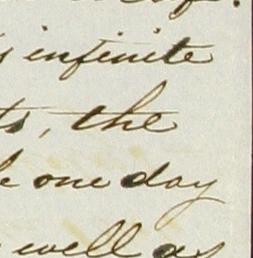 infinite
the
one day
well as